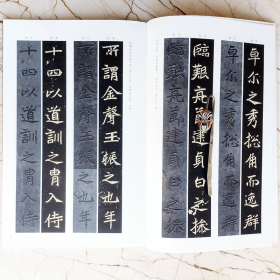 卓尔之秀捴角而逸群
卓尔之秀捴角而逸群
臨艱亮節建貞白之操
臨艱亮節建貞白之操
所謂金聲玉振之也年
所謂金聲玉振之也年
十四以道訓之胄入侍
十四以道訓之胄入侍